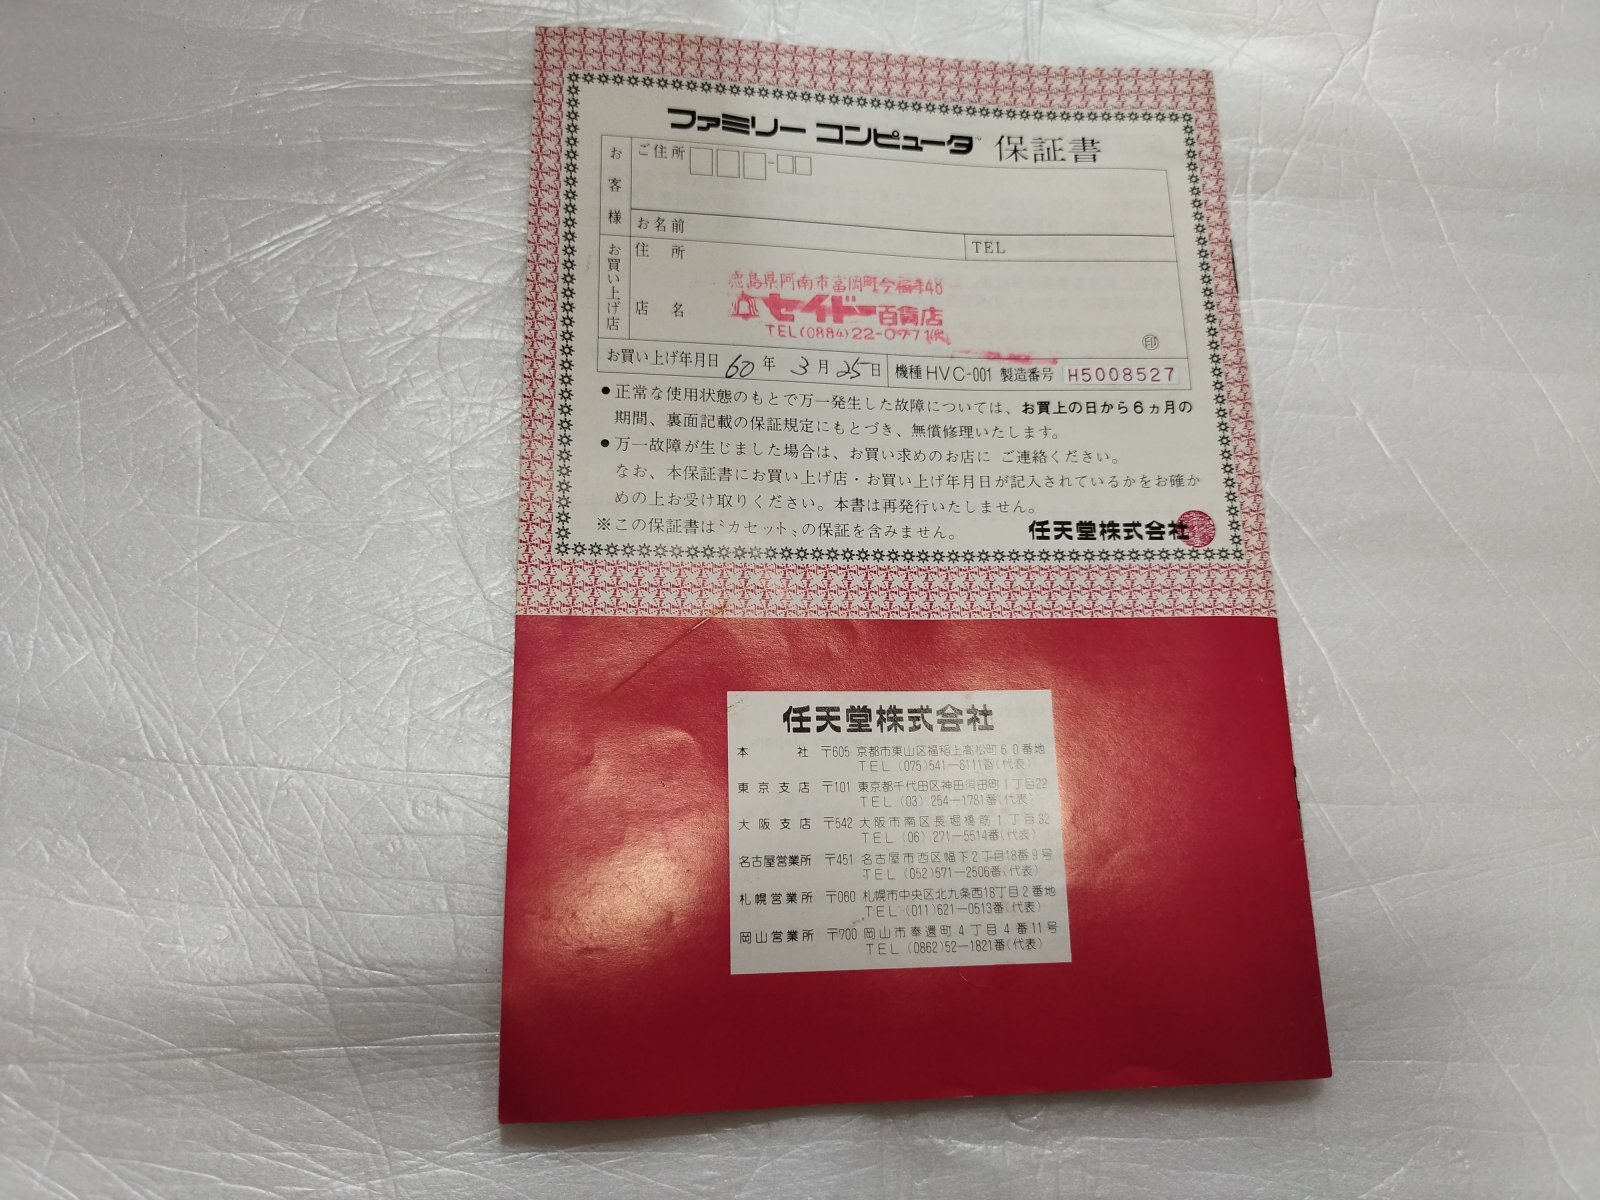 ファミリー コンピュータ 保証書
お客様
ご住所
お名前
TEL
お買い上げ店
住所
徳島県阿南市富岡町今福寺48
店名
セイドー百貨店
TEL(0884)22-0771㈹
印
お買い上げ年月日 60年 3月 25日 機種 HVC-001 製造番号 H5008527
●正常な使用状態のもとで万一発生した故障については、お買上の日から6ヵ月の
期間、裏面記載の保証規定にもとづき、無償修理いたします。
●万一故障が生じました場合は、お買い求めのお店に ご連絡ください。
なお、本保証書にお買い上げ店・お買い上げ年月日が記入されているかをお確か
めの上お受け取りください。本書は再発行いたしません。
※この保証書は〝カセット〟の保証を含みません。
任天堂株式会社
任天堂株式会社
本社 〒605 京都市東山区福稲上高松町60番地
TEL (075)541-6111番(代表)
東京支店 〒101 東京都千代田区神田須田町1丁目22
TEL (03) 254-1781番(代表)
大阪支店 〒542 大阪市南区長堀橋筋1丁目32
TEL (06) 271-5514番(代表)
名古屋営業所 〒451 名古屋市西区幅下2丁目18番9号
TEL (052)571-2506番(代表)
札幌営業所 〒060 札幌市中央区北九条西18丁目2番地
TEL (011)621-0513番(代表)
岡山営業所 〒700 岡山市奉還町4丁目4番11号
TEL (0862)52-1821番(代表)